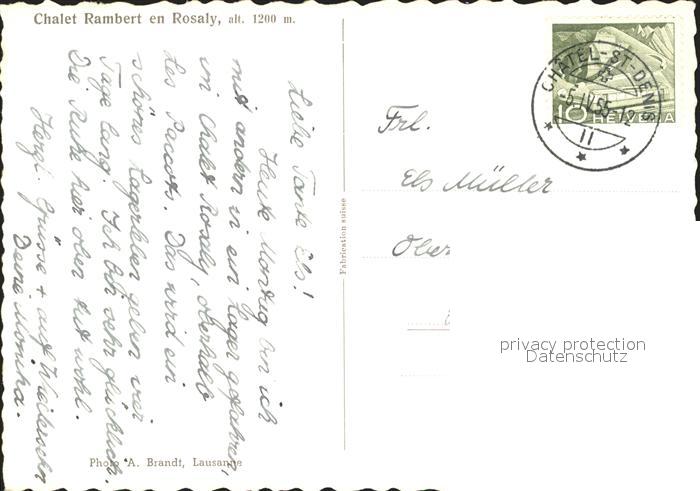 Chalet Rambert en Rosaly, alt. 1200 m.
Liebe Tante Els!
Heute Montag bin ich
mit andern in ein Lager gefahren,
in Chalet Rosaly, oberhalb
des Paccots. Das wird ein
schönes Lagerleben geben vier
Tage lang. Ich bin sehr glücklich.
Die Ruhe hier oben tut wohl.
Herzl. Grüsse + auf Wiedersehn
Deine Monika.
Photo A. Brandt, Lausanne
Fabrication suisse
CHÂTEL-ST-DENIS
-5.IV.55-12
II
10 HELVETIA
Frl.
Els Müller
Ober
privacy protection
Datenschutz